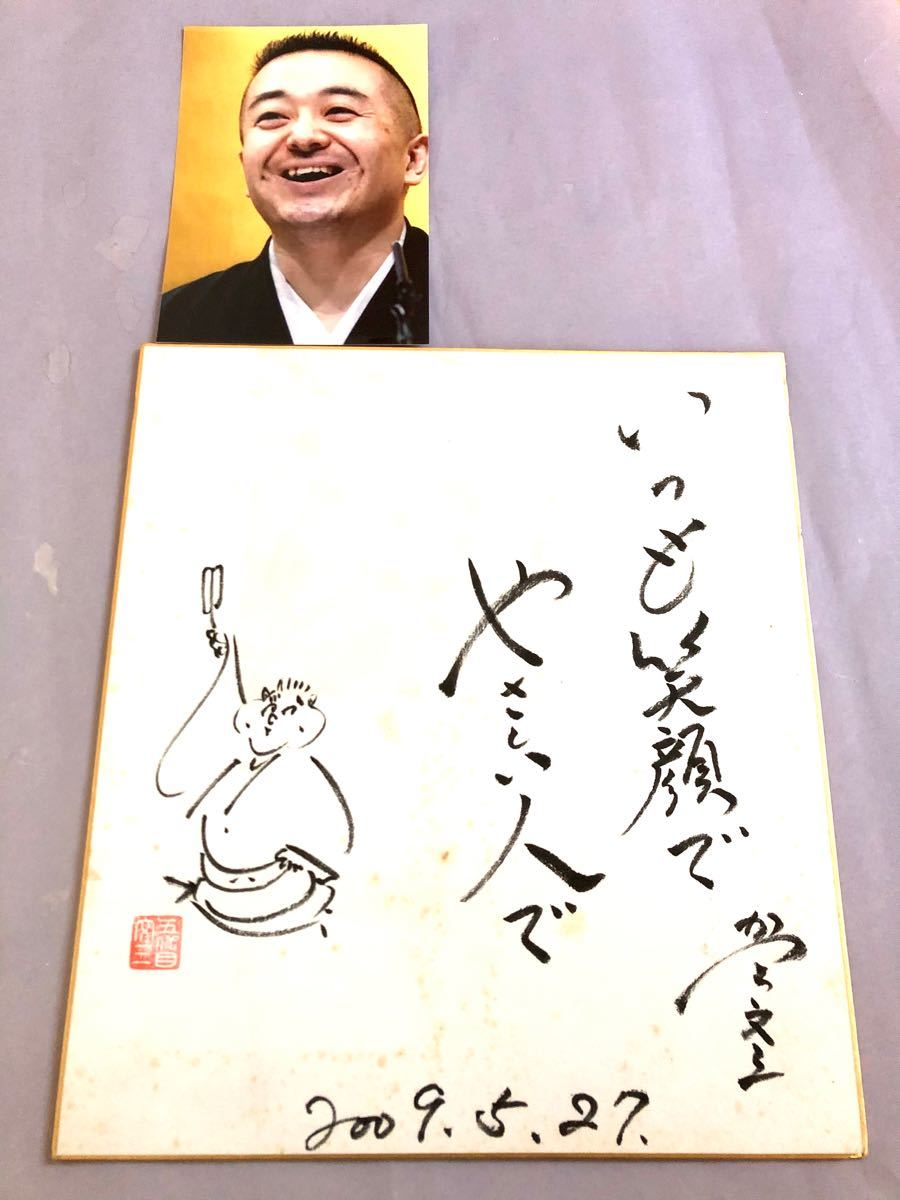 いつも笑顔で
やさしい人で
かつら文三
五代目
文三
2009.5.27.